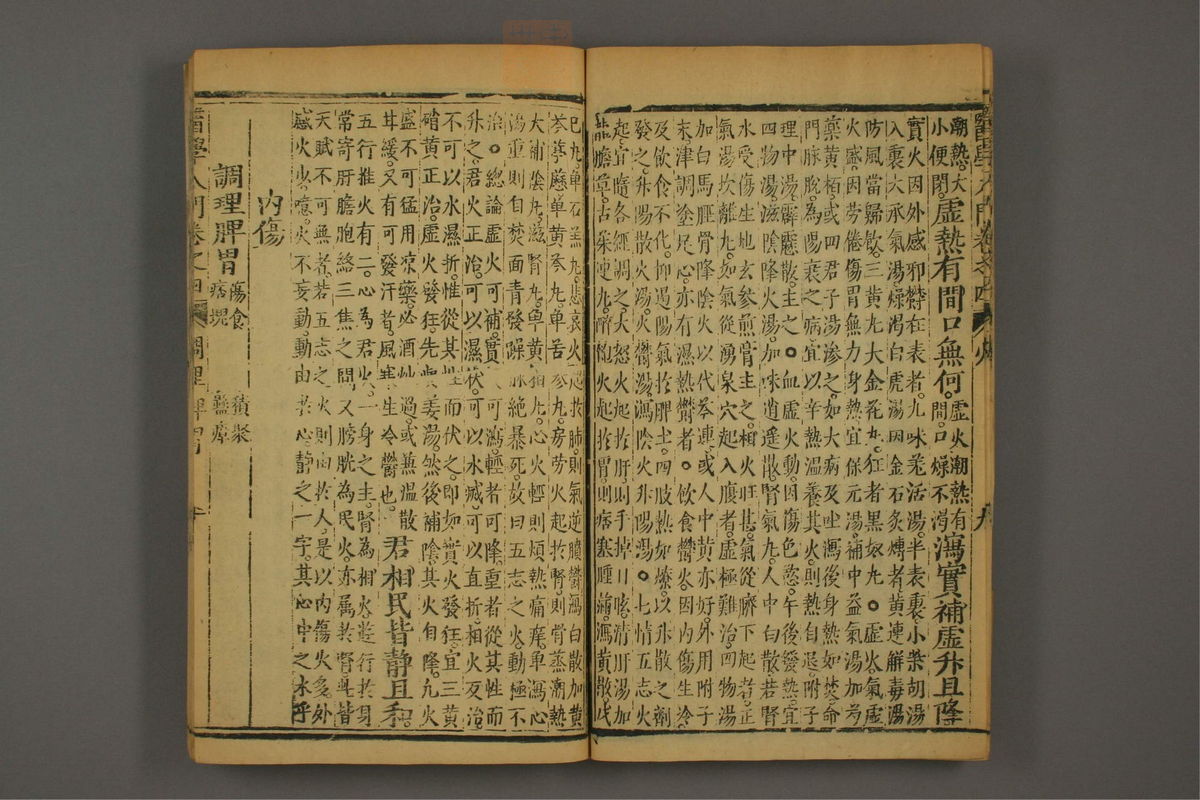 潮熱大
小便閉虛熱有間口無何虛火潮熱有間口燥不渴瀉實補虛升且降
實火因外感邪欝在表者九味羗活湯半表裏小柴胡湯
入裏大承氣湯燥渴白虎湯因金石炙煿者黃連解毒湯
防風當歸飲三黃丸大金花丸狂者黑奴丸○虛火氣虛
火盛因勞倦傷胃無力身熱宜保元湯補中益氣湯加芍
藥黃栢或四君子湯滲之如大病及吐瀉後身熱如焚命
門脉脫為陽衰之病宜以辛熱溫養其火則熱自退附子
理中湯霹靂散主之○血虛火動因傷色慾午後發熱宜
四物湯滋陰降火湯加味逍遙散腎氣丸人中白散若腎
水受傷生地玄參煎膏主之相火旺甚氣從臍下起者正
氣湯坎離丸如氣從湧泉穴起入腹者虛極難治四物湯
加白馬脛骨降陰火以代芩連或人中黃亦好外用附子
末津調塗足心亦有濕熱欝者○飲食欝火因內傷生冷
及飲食不化抑遏陽氣於脾土四肢熱如燎以升散之劑
發之升陽散火湯火欝湯瀉陰火升陽湯○七情五志火
起宜隨各經調之大怒火起於肝則手掉目眩清肝湯加
龍膽草古柴連丸醉飽火起於胃則痞塞腫滿瀉黃散戊
己丸單石羔丸悲哀火起於肺則氣逆膹欝瀉白散加黃
芩葶藶單黃芩丸單苦參丸房勞火起於腎則骨蒸潮熱
大補陰丸滋腎丸單黃栢丸心火輕則煩熱痛痒單瀉心
湯重則自焚面青發躁脉絕暴死故曰五志之火動極不
治○總論虛火可補實火可瀉輕者可降重者從其性而
升之君火正治可以濕伏可以水滅可以直折相火反治
不可以水濕折惟從其性而伏之即如實火發狂宜三黃
硝黃正治虛火發狂先與姜湯然後補陰其火自降凡火
盛不可猛用凉藥必酒炒過或兼溫散
甘緩又有可發汗者風寒生冷欝也君相民皆靜且和
五行推火有二心為君火一身之主腎為相火遊行於身
常寄肝膽胞絡三焦之間又膀胱為民火亦属於腎與皆
天賦不可無者若五志之火則由於人是以內傷火多外
感火少噫火不妄動動由於心靜之一字其心中之水乎
內傷
調理脾胃 傷食 積聚
痞塊
醫學入門卷之四 調理脾胃 十